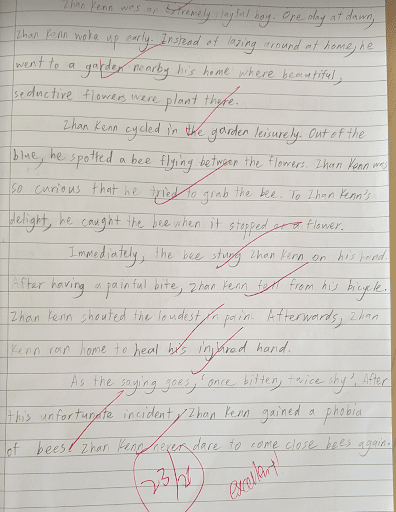 Zhan Kenn was an extremely playful boy. One day at dawn,
Zhan Kenn woke up early. Instead of lazing around at home, he
went to a garden nearby his home where beautiful,
seductive flowers were plant there.
Zhan Kenn cycled in the garden leisurely. Out of the
blue, he spotted a bee flying between the flowers. Zhan Kenn was
so curious that he tried to grab the bee. To Zhan Kenn's
delight, he caught the bee when it stopped on a flower.
Immediately, the bee stung Zhan Kenn on his hand.
After having a painful bite, Zhan Kenn fell from his bicycle.
Zhan Kenn shouted the loudest in pain. Afterwards, Zhan
Kenn ran home to heal his injured hand.
As the saying goes, 'once bitten, twice shy'. After
this unfortunate incident, Zhan Kenn gained a phobia
of bees. Zhan Kenn never dare to come close bees again.
23/
excellent!